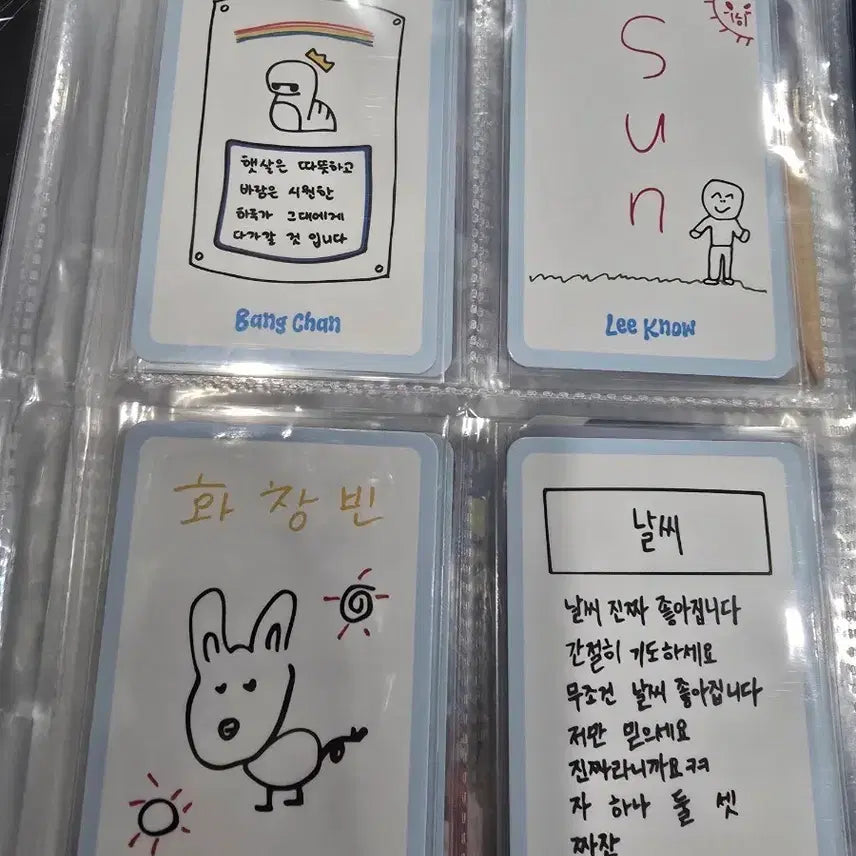 햇살은 따뜻하고
바람은 시원한
하루가 그대에게
다가갈 것 입니다
Bang Chan
S
u
n
Lee Know
화창빈
날씨
날씨 진짜 좋아집니다
간절히 기도하세요
무조건 날씨 좋아집니다
저만 믿으세요
진짜라니까요ㅋㅋ
자 하나 둘 셋
짜잔